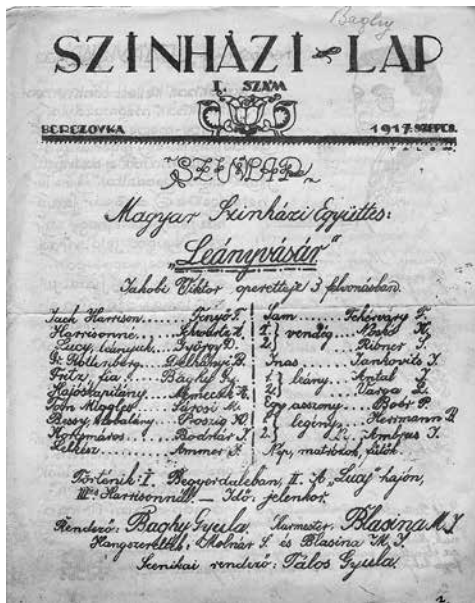 Baghy
SZINHÁZI LAP
I. SZÁM
BEREZOVKA 1917. SZEPT. 8.
SZINLAP
Magyar Szinházi Együttes:
„Leányvásár"
Jakobi Viktor operettje 3 felvonásban.
Jack Harrison....... Fenyő F.
Harrisonné....... Schwartz A.
Lucy, leányuk.... György D.
Gr. Rottenberg.... Delhányi B.
Fritz, fia....... Baghy Gy.
Hajóskapitány... Nemecsek K.
Tom Miggles.... Sárosi M.
Bessy, szobalány.. Oroszig K.
Korcsmáros...... Bodnár I.
Lelkész....... Ammer J.
Sam....... Fehérváry F.
1. 2. } vendég... Moskó K. Ribner S.
Inas....... Jankovits I.
1. 2. } leány... Antal J. Varga L.
Egy asszony.... Boér P.
1. 2. } legény... Herrmann B. Ambrus I.
Nép, matrózok, fűtők.
Történik: I. Begyerdaleban, II. A „Lucy" hajón,
III. Harrisonnál. — Idő: jelenkor.
Rendező: Baghy Gyula. Karmester: Blasina M. J.
Hangszerelték: Molnár S. és Blasina M. J.
Scenikai rendező: Tálos Gyula.
2.